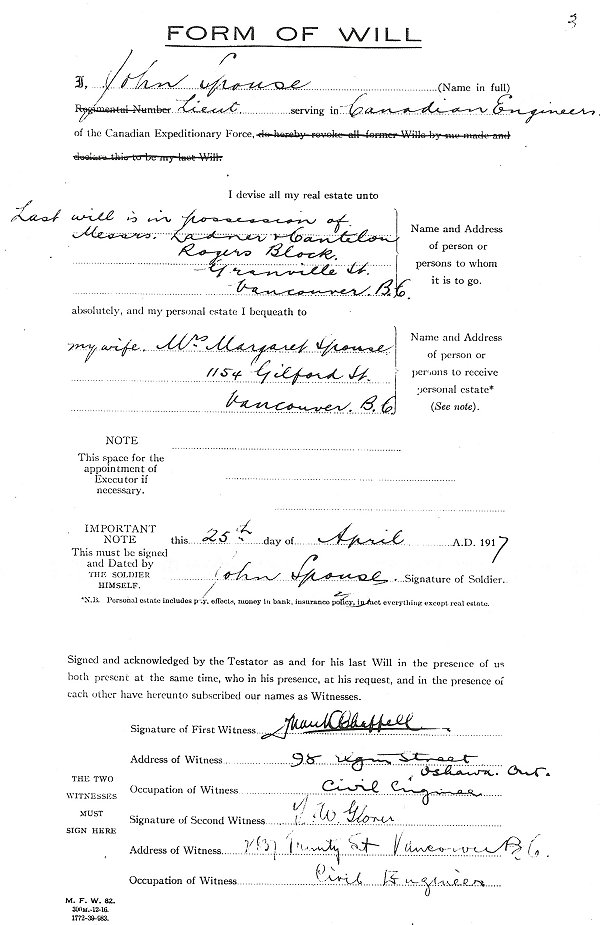 3
FORM OF WILL
I, John Spouse (Name in full)
Regimental Number Lieut serving in Canadian Engineers
of the Canadian Expeditionary Force, do hereby revoke all former Wills by me made and
declare this to be my last Will.
I devise all my real estate unto
Last will is in possession of
Messrs. Ladner & Cantelon
Rogers Block.
Granville St.
Vancouver. B.C.
Name and Address
of person or
persons to whom
it is to go.
absolutely, and my personal estate I bequeath to
my wife. Mrs Margaret Spouse
1154 Gilford St.
Vancouver. B.C.
Name and Address
of person or
persons to receive
personal estate*
(See note).
NOTE
This space for the
appointment of
Executor if
necessary.
IMPORTANT
NOTE
This must be signed
and Dated by
THE SOLDIER
HIMSELF.
this 25th day of April A.D. 1917
John Spouse. Signature of Soldier.
*N.B. Personal estate includes pay, effects, money in bank, insurance policy, in fact everything except real estate.
Signed and acknowledged by the Testator as and for his last Will in the presence of us
both present at the same time, who in his presence, at his request, and in the presence of
each other have hereunto subscribed our names as Witnesses.
THE TWO
WITNESSES
MUST
SIGN HERE
Signature of First Witness Chappell
Address of Witness 98 Street
Oshawa. Ont.
Occupation of Witness Civil Engineer
Signature of Second Witness W. Glover
Address of Witness Trinity St Vancouver B.C.
Occupation of Witness Civil Engineer
M. F. W. 82.
300m.-12-16.
1772-39-983.